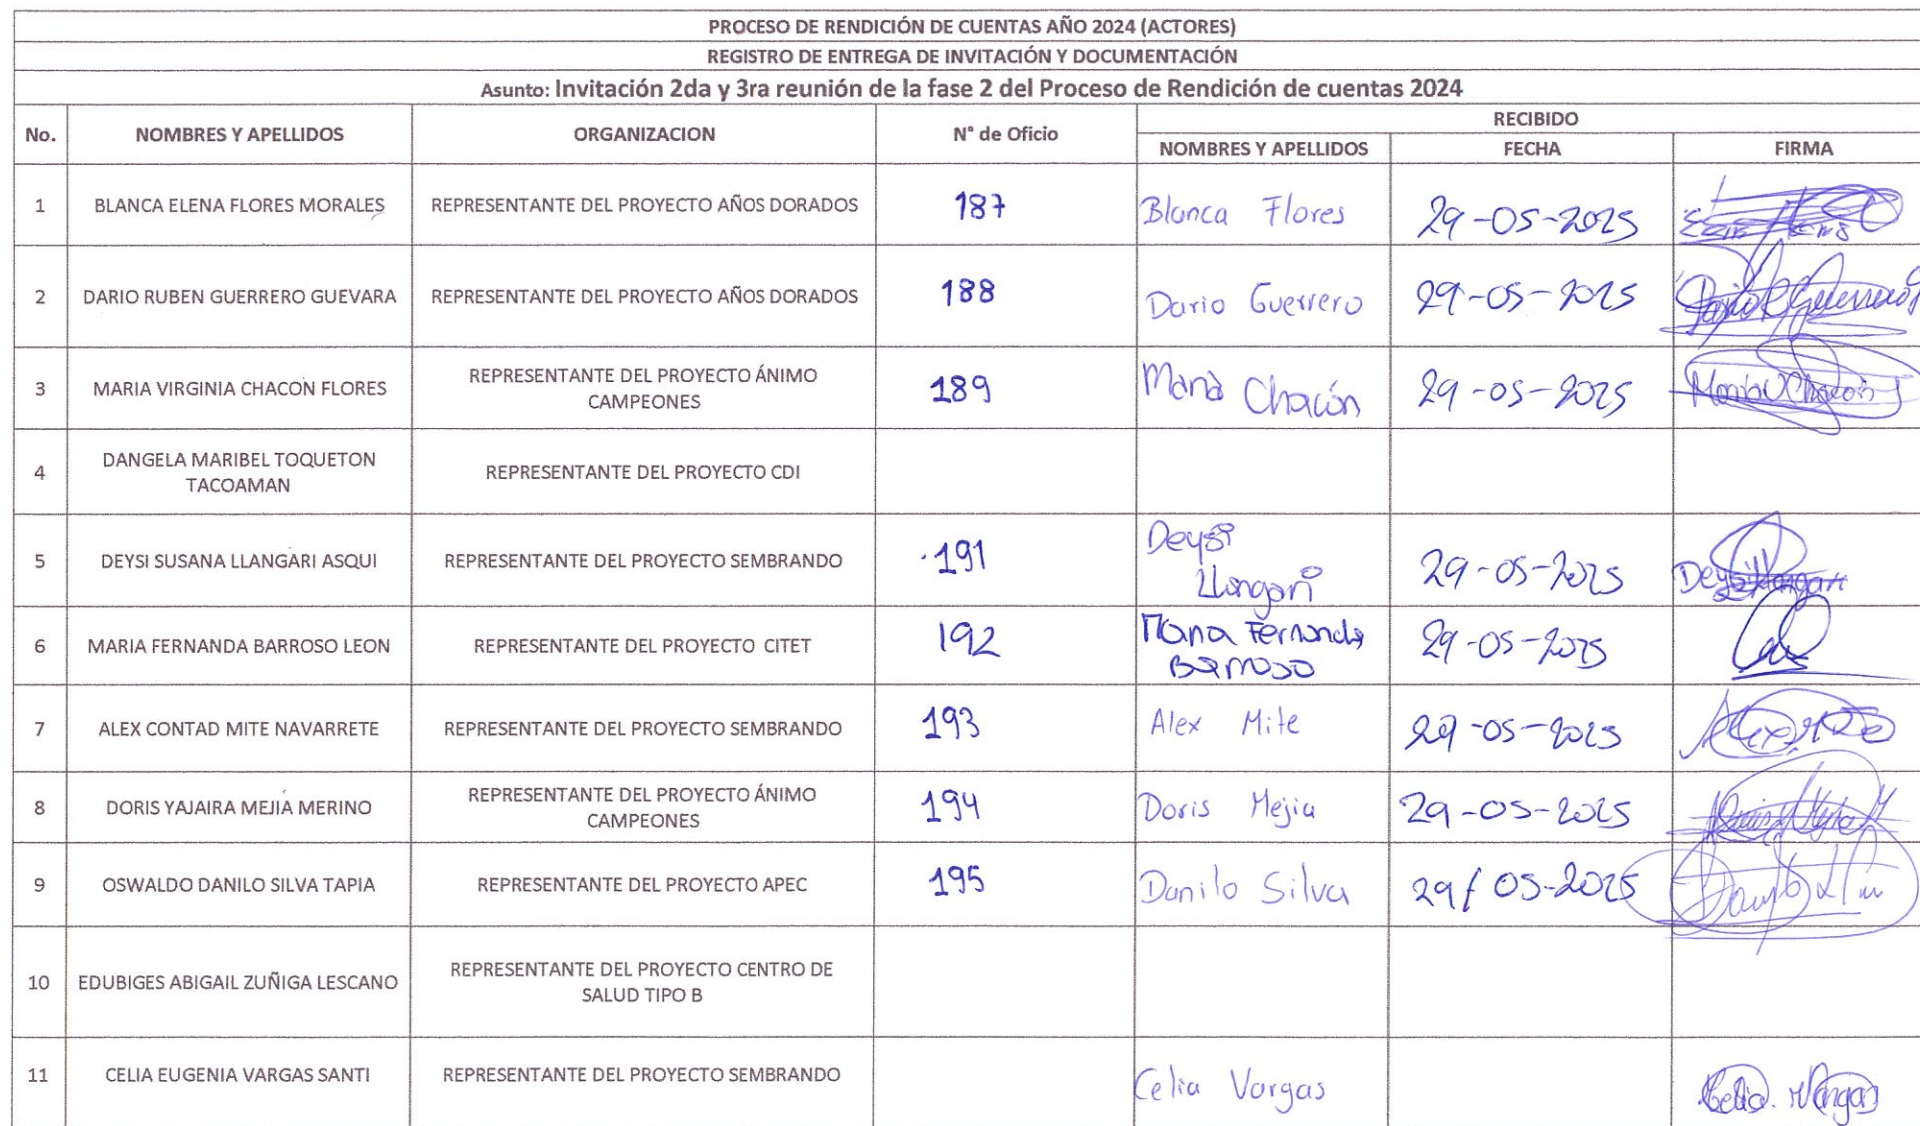 PROCESO DE RENDICIÓN DE CUENTAS AÑO 2024 (ACTORES)
REGISTRO DE ENTREGA DE INVITACIÓN Y DOCUMENTACIÓN
Asunto: Invitación 2da y 3ra reunión de la fase 2 del Proceso de Rendición de cuentas 2024
No. NOMBRES Y APELLIDOS ORGANIZACION N° de Oficio RECIBIDO
NOMBRES Y APELLIDOS FECHA FIRMA
1 BLANCA ELENA FLORES MORALES REPRESENTANTE DEL PROYECTO AÑOS DORADOS 187 Blanca Flores 29-05-2025
2 DARIO RUBEN GUERRERO GUEVARA REPRESENTANTE DEL PROYECTO AÑOS DORADOS 188 Dario Guerrero 29-05-2025 Dario R Guerrero
3 MARIA VIRGINIA CHACON FLORES REPRESENTANTE DEL PROYECTO ÁNIMO
CAMPEONES 189 Maria Chacón 29-05-2025 Maria V Chacón
4 DANGELA MARIBEL TOQUETON
TACOAMAN REPRESENTANTE DEL PROYECTO CDI
5 DEYSI SUSANA LLANGARI ASQUI REPRESENTANTE DEL PROYECTO SEMBRANDO 191 Deysi
Llangari 29-05-2025 Deysi Llangari
6 MARIA FERNANDA BARROSO LEON REPRESENTANTE DEL PROYECTO CITET 192 Maria Fernanda
Barroso 29-05-2025
7 ALEX CONTAD MITE NAVARRETE REPRESENTANTE DEL PROYECTO SEMBRANDO 193 Alex Mite 29-05-2025
8 DORIS YAJAIRA MEJIA MERINO REPRESENTANTE DEL PROYECTO ÁNIMO
CAMPEONES 194 Doris Mejia 29-05-2025
9 OSWALDO DANILO SILVA TAPIA REPRESENTANTE DEL PROYECTO APEC 195 Danilo Silva 29/05-2025
10 EDUBIGES ABIGAIL ZUÑIGA LESCANO REPRESENTANTE DEL PROYECTO CENTRO DE
SALUD TIPO B
11 CELIA EUGENIA VARGAS SANTI REPRESENTANTE DEL PROYECTO SEMBRANDO Celia Vargas Celia Vargas